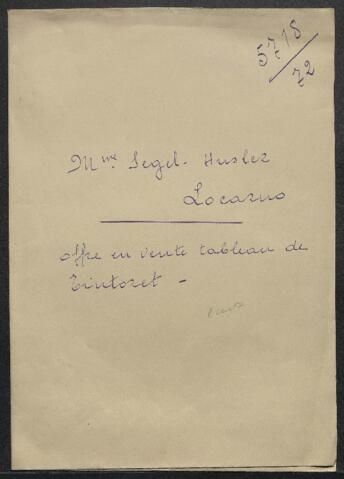 5718/72
Mme Segel-Husler
Locarno
offre en vente tableau de
Tintoret -